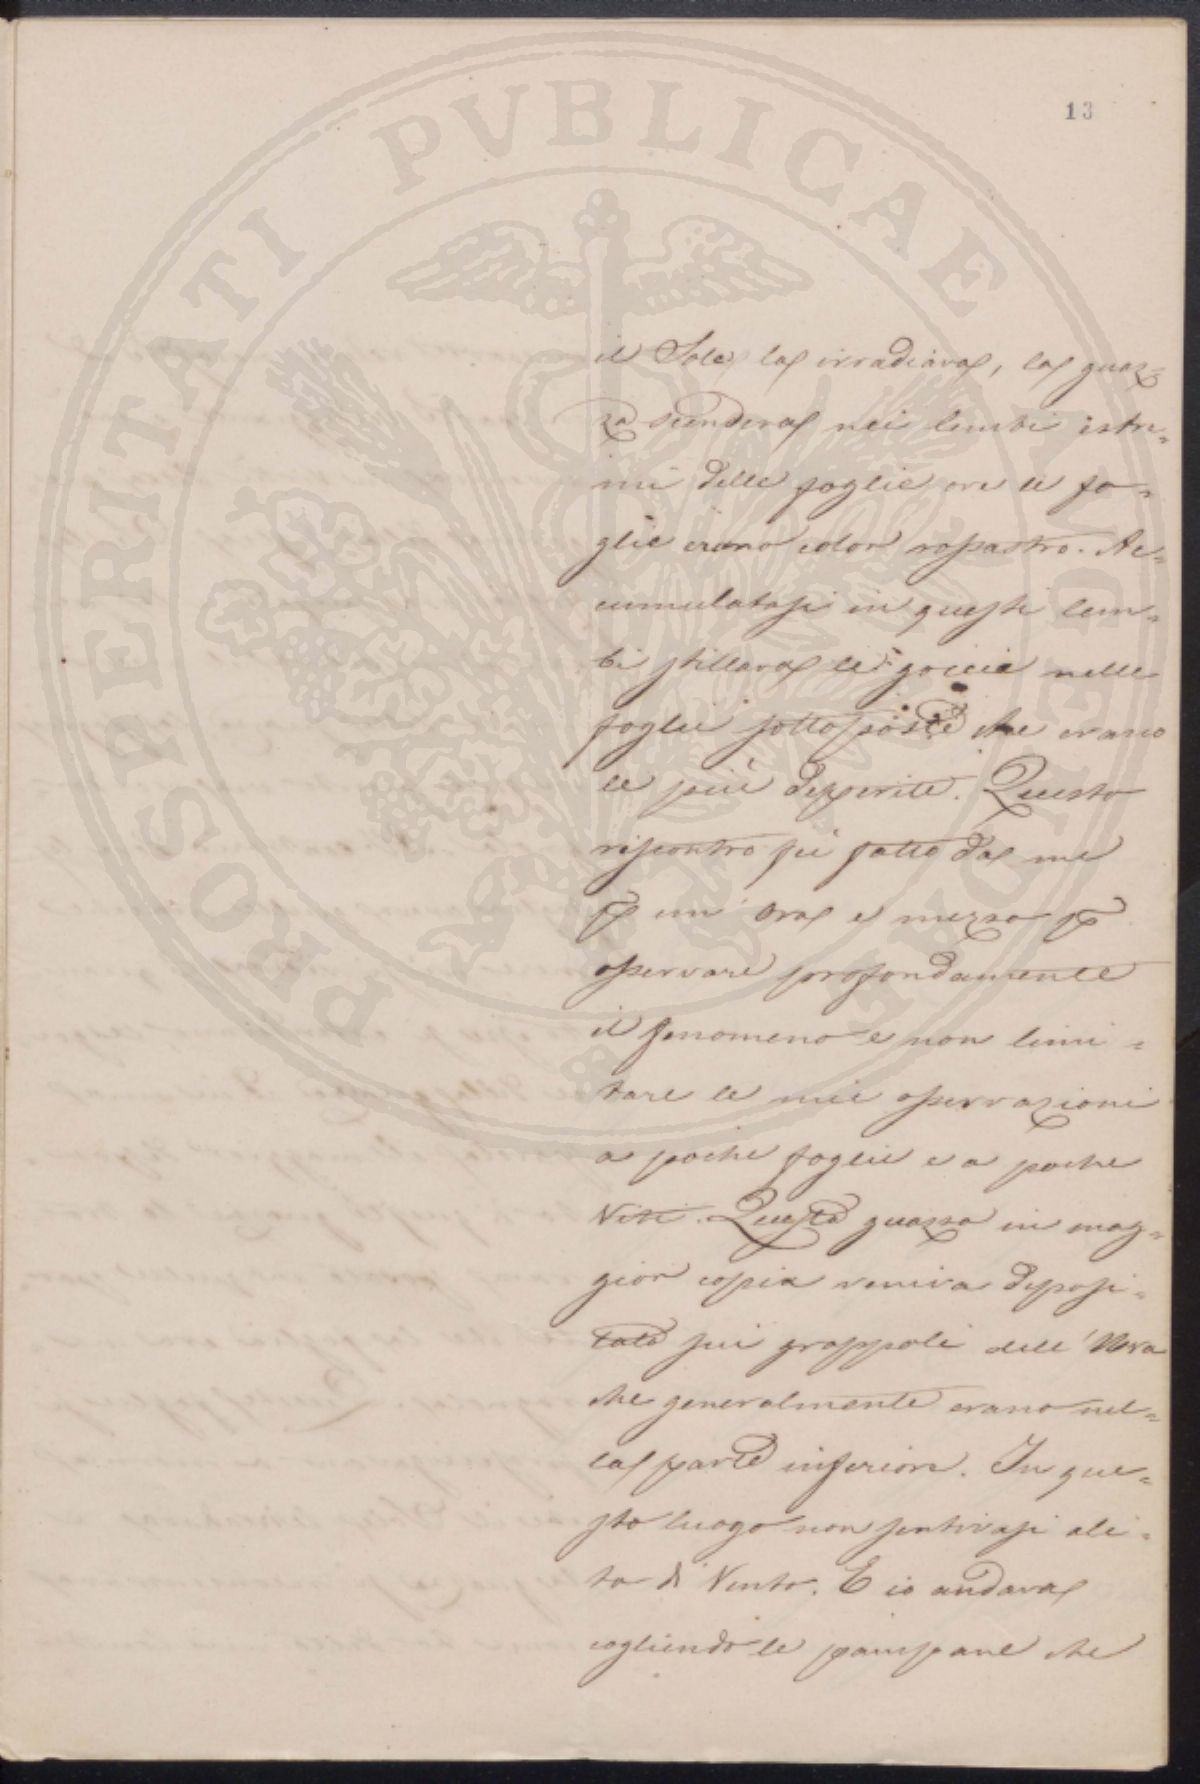 13
il Sole la irradiava, la guaz=
za scendeva nei lembi estre=
mi delle foglie ove le fo=
glie erano color rossastro. Ac=
cumulatasi in questi lem=
bi stillava le goccie nelle
foglie sottoposte che erano
le più deperite. Questo
riscontro fù fatto da me
p un' ora e mezzo p
osservare profondamente
il fenomeno e non limi=
tare le mie osservazioni
a poche foglie e a poche
Viti. Questa guazza in mag=
gior copia veniva deposi=
tata sui grappoli dell'Uva
che generalmente erano nel=
la parte inferiore. In que=
sto luogo non sentivasi ali=
to di Vento. E io andava
cogliendo le pampane che
PROSPERITATI PVBLICAE